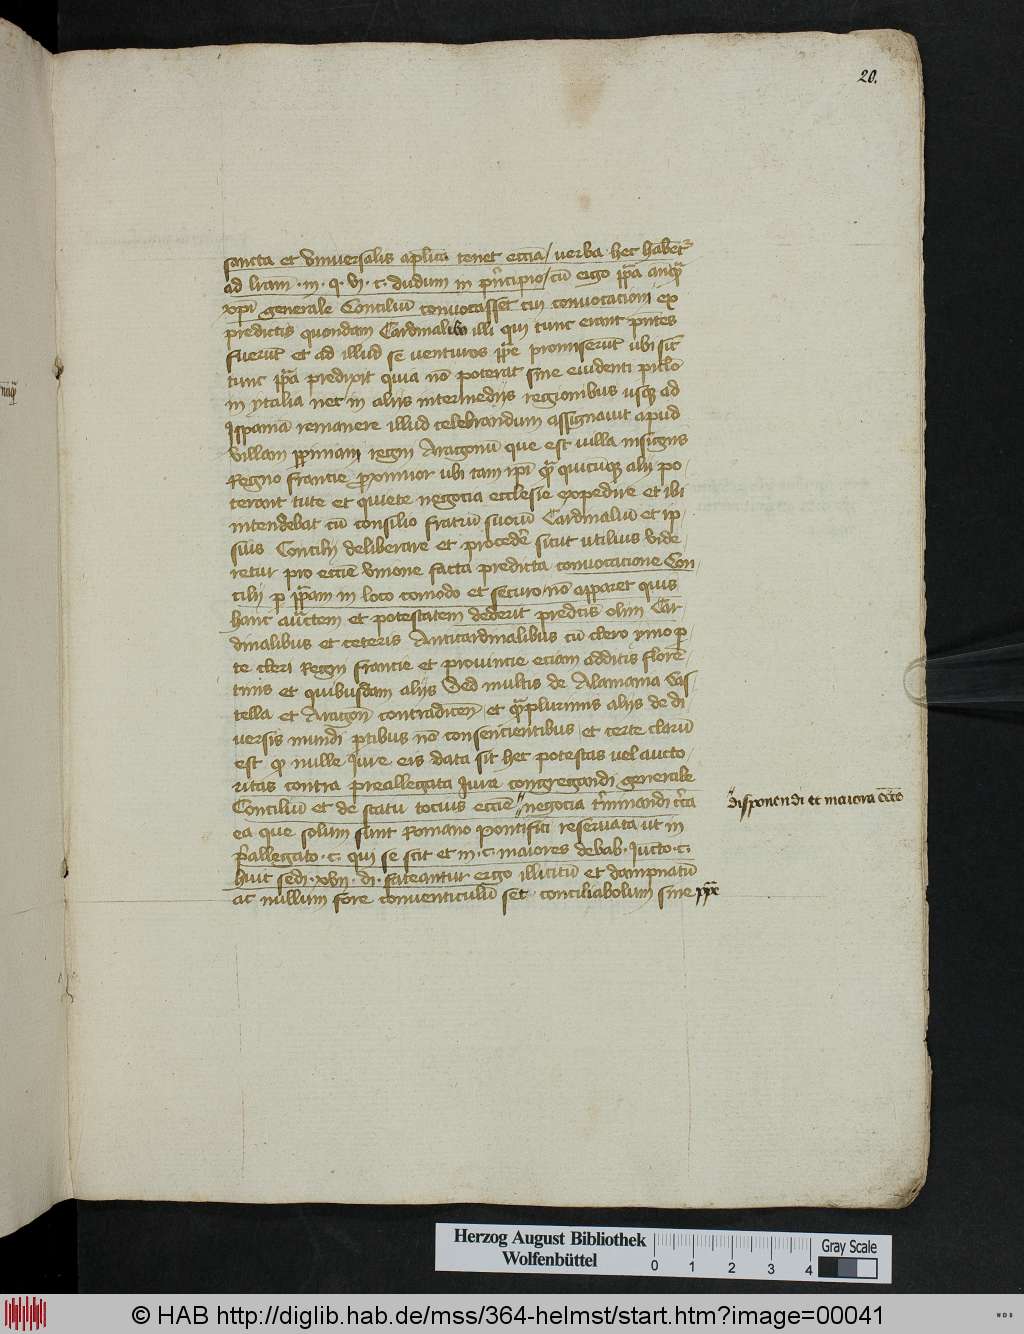 20.
sancta et vniuersalis aplica tenet eccia / verba hec habentr
ad lram · iii · q · vi · c · dudum in principio / cu ergo ppa antqua
xpi generale Conciliu conuocasset cui conuocacioni ex
predictis quondam Cardinalibus illi qui tunc erant pntes
fuerut et ad illud se venturos ppe promiserut vbi sic
tunc ppa predixit quia no poterat sine euidenti piclo
in ytalia nec in alijs intermedijs regionibus vsq ad
Ispaniam remanere illud celebrandum assignauit apud
villam ppiniani regni Aragonu que est villa insignis
Regno francie proximior vbi tam ipi qua quicuq alij po
terant tute et quiete negocia ecclesie expedire et ibi
intendebat cu consilio fratru suoru Cardinaliu et ip
sius Concilij deliberare et proceder sicut vtilius vide
retur pro eccie vnione facta predicta conuocacione Con
cilij p ppam in loco comodo et securo no apparet quis
hanc auctem et potestatem dederit predictis olim Car
dinalibus et ceteris Anticardinalibus cu clero ymo p
te cleri Regni francie et prouincie eciam additis floren
tinis et quibusdam alijs Sed multis de Alamania Cas
tella et Aragon contradicen et quaplurimis alijs de di
uersis mundi ptibus no consencientibus et certe claru
est q nullo Iure eis data sit hec potestas vel aucto
ritas contra preallegata Iura congregandi generale
Conciliu et de statu tocius eccie negocia trminandi circa
disponendi et maiora eccie
ea que solum sunt Romano pontifici reseruata vt in
preallegato · c · qui se scit et in · c · maiores de bab · Iucto · c ·
huic sedi · xvii · di · fateantur ergo illicitu et dampnatu
ac nullum fore conuenticulu set conciliabolum sine ppe
Herzog August Bibliothek
Wolfenbüttel
0 1 2 3 4
Gray Scale
© HAB http://diglib.hab.de/mss/364-helmst/start.htm?image=00041